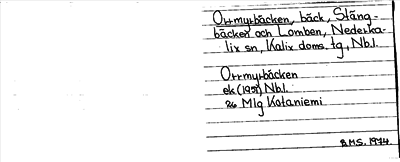 Orrmyrbäcken, bäck, Stäng-
bäcken och Lomben, Nederka-
lix sn, Kalix doms. tg., Nb.l.
Orrmyrbäcken
ek (1959) Nb.l.
26 Mlg Kotaniemi
B.H.S. 1974.